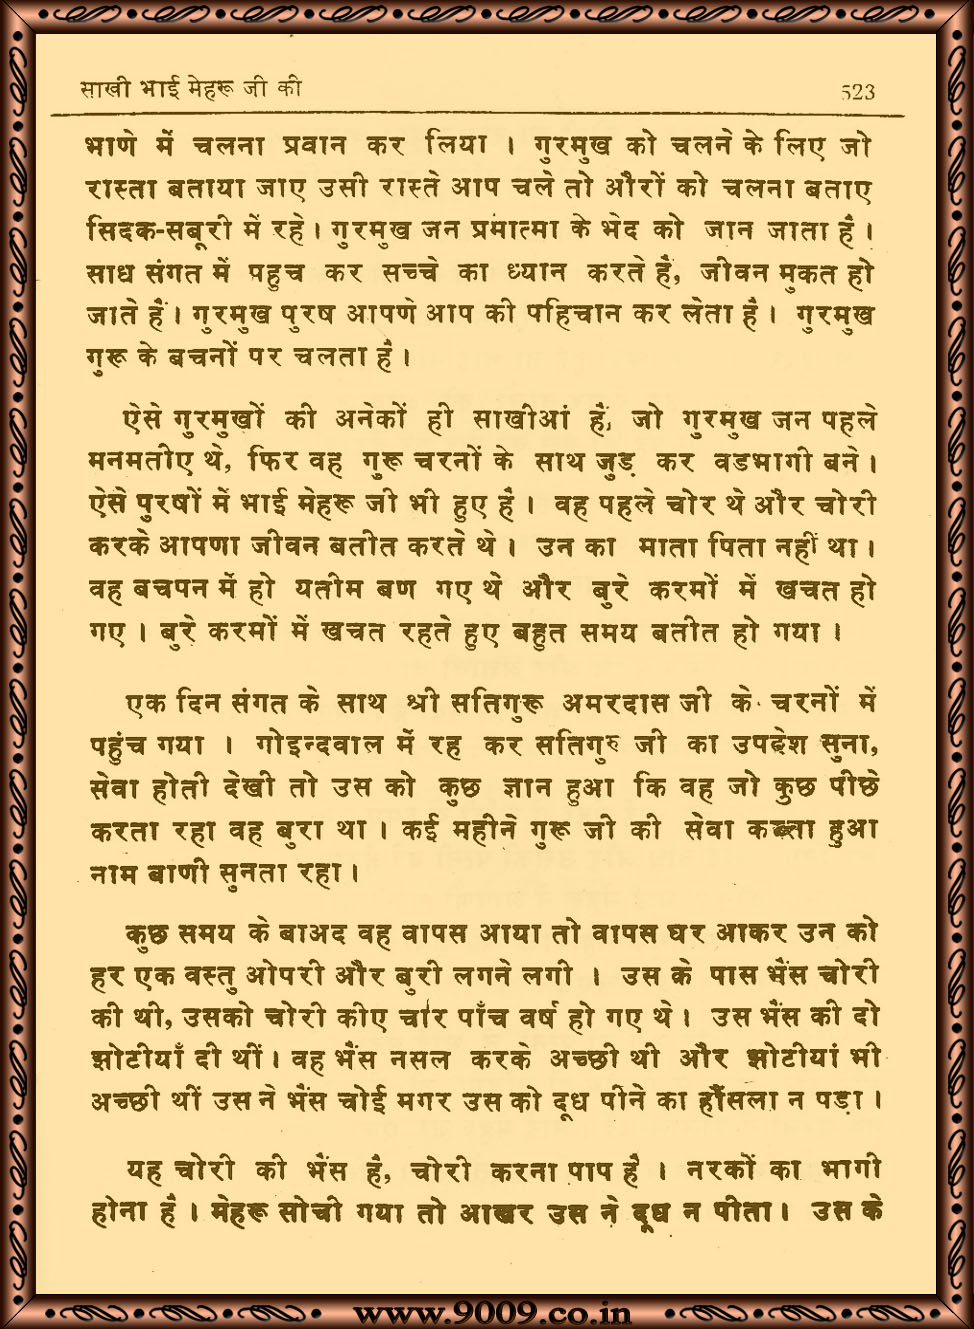 साखी भाई मेहरू जी की 523
भाणे में चलना प्रवान कर लिया । गुरमुख को चलने के लिए जो
रास्ता बताया जाए उसी रास्ते आप चले तो औरों को चलना बताए
सिदक-सबूरी में रहे । गुरमुख जन प्रमात्मा के भेद को जान जाता है ।
साध संगत में पहुच कर सच्चे का ध्यान करते हैं, जीवन मुकत हो
जाते हैं । गुरमुख पुरष आपणे आप की पहिचान कर लेता है । गुरमुख
गुरू के बचनों पर चलता है ।
ऐसे गुरमुखों की अनेकों ही साखीआं हैं, जो गुरमुख जन पहले
मनमतीए थे, फिर वह गुरू चरनों के साथ जुड़ कर वडभागी बने ।
ऐसे पुरषों में भाई मेहरू जी भी हुए हैं । वह पहले चोर थे और चोरी
करके आपणा जीवन बतीत करते थे । उन का माता पिता नहीं था ।
वह बचपन में हो यतीम बण गए थे और बुरे करमों में खचत हो
गए । बुरे करमों में खचत रहते हुए बहुत समय बतीत हो गया ।
एक दिन संगत के साथ श्री सतिगुरू अमरदास जी के चरनों में
पहुंच गया । गोइन्दवाल में रह कर सतिगुरु जी का उपदेश सुना,
सेवा होती देखी तो उस को कुछ ज्ञान हुआ कि वह जो कुछ पीछे
करता रहा वह बुरा था । कई महीने गुरू जी की सेवा करता हुआ
नाम बाणी सुनता रहा ।
कुछ समय के बाअद वह वापस आया तो वापस घर आकर उन को
हर एक वस्तु ओपरी और बुरी लगने लगी । उस के पास भैंस चोरी
की थी, उसको चोरी कीए चार पाँच वर्ष हो गए थे । उस भैंस की दो
झोटीयाँ दी थीं । वह भैंस नसल करके अच्छी थी और झोटीयां भी
अच्छी थीं उस ने भैंस चोई मगर उस को दूध पीने का हौंसला न पड़ा ।
यह चोरी की भैंस है, चोरी करना पाप है । नरकों का भागी
होना है । मेहरू सोची गया तो आखर उस ने दूध न पीता । उस के
www.9009.co.in